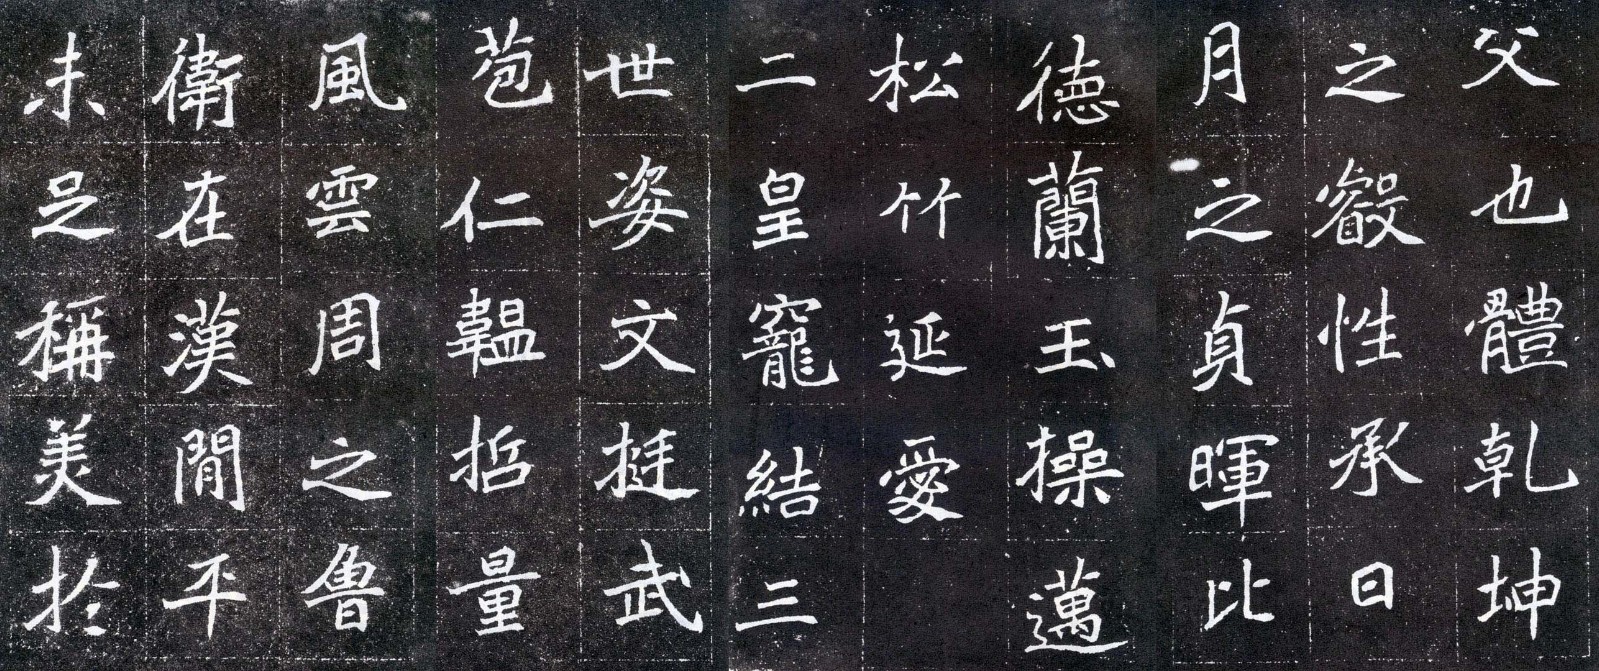 父也體乾坤
之叡性承日
月之貞暉比
德蘭玉操邁
松竹延愛
二皇寵結三
世姿文挺武
苞仁韞哲量
風雲周之魯
衛在漢閒平
未足稱美於